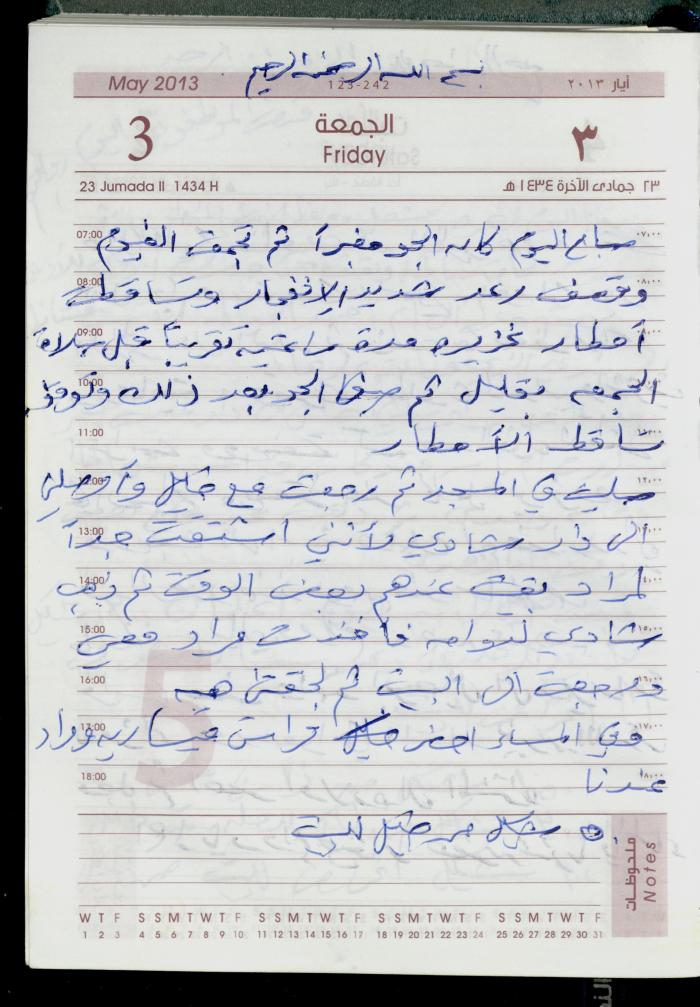 بسم الله الرحمن الرحيم
May 2013 123-242 أيار ٢٠١٣
3 الجمعة ٣
Friday
23 Jumada II 1434 H ٢٣ جمادى الآخرة ١٤٣٤ هـ
07:00 صباح اليوم كان الجو مغبراً ثم تجمعت الغيوم ٠٧,٠٠
08:00 وقصف رعد شديد الإنفجار وتساقطت ٠٨,٠٠
09:00 أمطار غزيره مدة ساعتين تقريباً قبل صلاة
10:00 الجمعه بقليل ثم صفا الجو بعد ذلك وتوقف
11:00 تساقط الأمطار
12:00 صليت في المسجد ثم رجعت مع خليل وأوصلني ١٢,٠٠
13:00 الى دار شادي لأنني اشتقت جداً
14:00 لمراد بقيت عندهم بعض الوقت ثم ذهب
15:00 شادي لدوامه فأخذت مراد معي ١٥,٠٠
16:00 ورجعت الى البيت ثم لحقتنا هبه ١٦,٠٠
17:00 وفي المساء احضر فراس ومراد ١٧,٠٠
18:00 عندنا ١٨,٠٠
5
خليل
ملحوظات
Notes
W T F S S M T W T F S S M T W T F S S M T W T F S S M T W T F
1 2 3 4 5 6 7 8 9 10 11 12 13 14 15 16 17 18 19 20 21 22 23 24 25 26 27 28 29 30 31